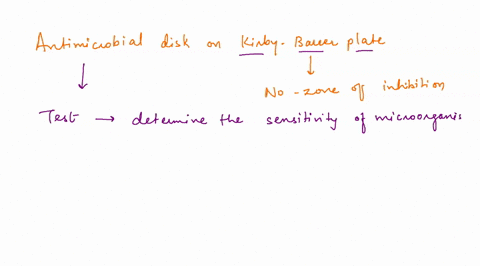 Antimicrobial disk on Kirby-Bauer plate
No-zone of inhibition
Test → determine the sensitivity of microorganis